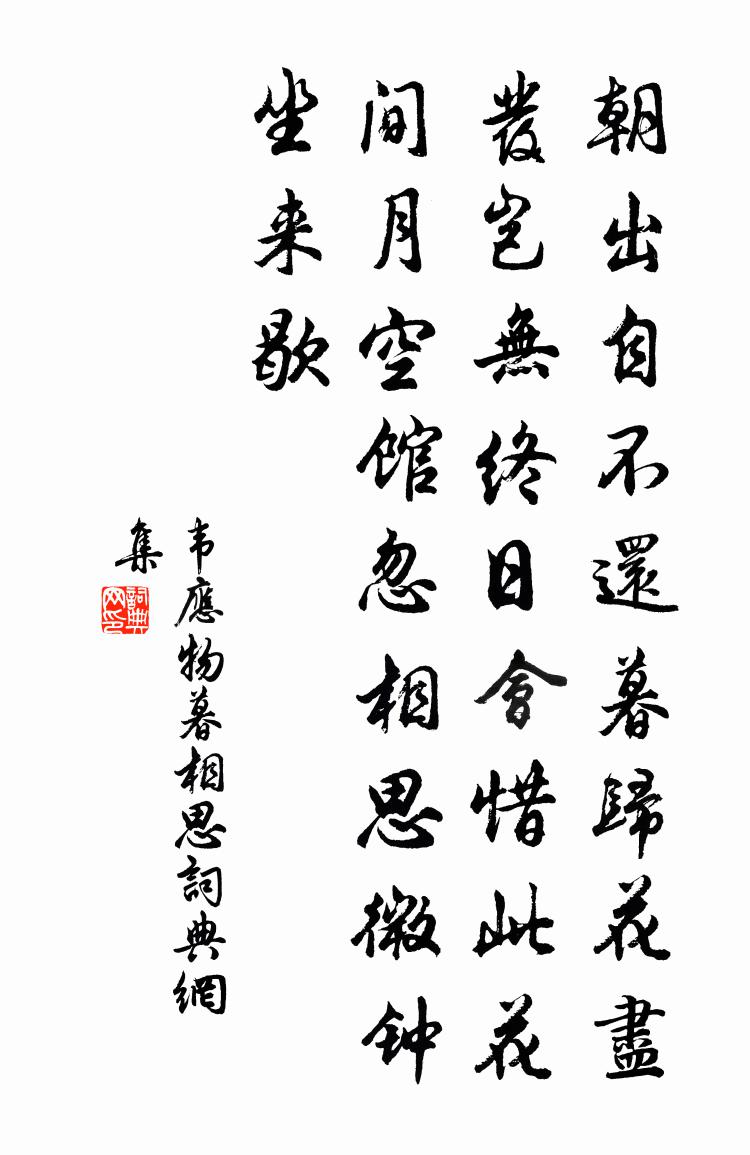 朝出自不還暮歸花盡
發豈無終日會惜此花
间月空館忽相思微钟
坐来歇
韦應物暮相思詞典網
集
詞典
网印